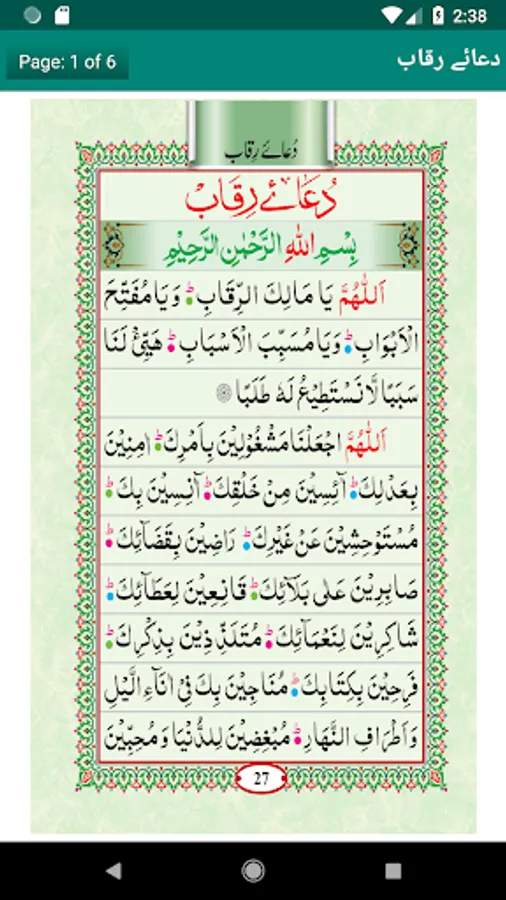 2:38
Page: 1 of 6
دعائے رقاب
دُعائے رِقاب
دُعَائے رِقَابْ
بِسْمِ اللهِ الرَّحْمٰنِ الرَّحِيْمِ
اَللّٰهُمَّ يَا مَالِكَ الرِّقَابِ ؕ وَيَا مُفَتِّحَ
الْاَبْوَابِ ؕ وَيَا مُسَبِّبَ الْاَسْبَابِ ؕ هَيِّئْ لَنَا
سَبَبًا لَّا نَسْتَطِيْعُ لَهٗ طَلَبًا ۞
اَللّٰهُمَّ اجْعَلْنَا مَشْغُوْلِيْنَ بِاَمْرِكَ ؕ اٰمِنِيْنَ
بِعَدْلِكَ ؕ آئِسِيْنَ مِنْ خَلْقِكَ ؕ اٰنِسِيْنَ بِكَ ؕ
مُسْتَوْحِشِيْنَ عَنْ غَيْرِكَ ؕ رَاضِيْنَ بِقَضَآئِكَ ؕ
صَابِرِيْنَ عَلٰى بَلَآئِكَ ؕ قَانِعِيْنَ لِعَطَآئِكَ ؕ
شَاكِرِيْنَ لِنَعْمَآئِكَ ؕ مُتَلَذِّذِيْنَ بِذِكْرِكَ ؕ
فَرِحِيْنَ بِكِتَابِكَ ؕ مُنَاجِيْنَ بِكَ فِيْ اٰنَآءِ الَّيْلِ
وَاَطْرَافِ النَّهَارِ ؕ مُبْغِضِيْنَ لِلدُّنْيَا وَمُحِبِّيْنَ
27